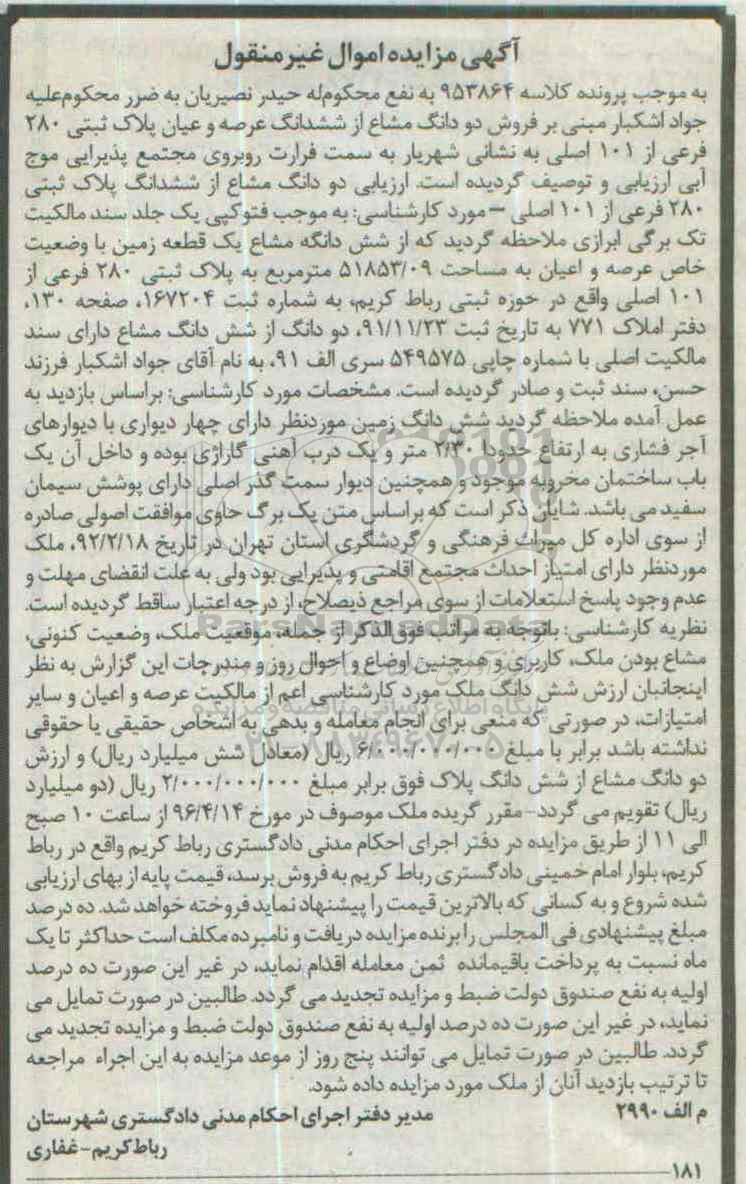 آگهی مزایده اموال غیرمنقول
به موجب پرونده کلاسه ۹۵۳۸۶۴ به نفع محکوم‌له حیدر نصیریان به ضرر محکوم‌علیه
جواد اشکبار مبنی بر فروش دو دانگ مشاع از ششدانگ عرصه و عیان پلاک ثبتی ۲۸۰
فرعی از ۱۰۱ اصلی به نشانی شهریار به سمت فرارت روبروی مجتمع پذیرایی موج
آبی ارزیابی و توصیف گردیده است. ارزیابی دو دانگ مشاع از ششدانگ پلاک ثبتی
۲۸۰ فرعی از ۱۰۱ اصلی – مورد کارشناسی: به موجب فتوکپی یک جلد سند مالکیت
تک برگی ابرازی ملاحظه گردید که از شش دانگه مشاع یک قطعه زمین با وضعیت
خاص عرصه و اعیان به مساحت ۵۱۸۵۳/۰۹ مترمربع به پلاک ثبتی ۲۸۰ فرعی از
۱۰۱ اصلی واقع در حوزه ثبتی رباط کریم، به شماره ثبت ۱۶۷۲۰۴، صفحه ۱۳۰،
دفتر املاک ۷۷۱ به تاریخ ثبت ۹۱/۱۱/۲۳، دو دانگ از شش دانگ مشاع دارای سند
مالکیت اصلی با شماره چاپی ۵۴۹۵۷۵ سری الف ۹۱، به نام آقای جواد اشکبار فرزند
حسن، سند ثبت و صادر گردیده است. مشخصات مورد کارشناسی: براساس بازدید به
عمل آمده ملاحظه گردید شش دانگ زمین موردنظر دارای چهار دیواری با دیوارهای
آجر فشاری به ارتفاع حدودا ۲/۳۰ متر و یک درب آهنی گاراژی بوده و داخل آن یک
باب ساختمان مخروبه موجود و همچنین دیوار سمت گذر اصلی دارای پوشش سیمان
سفید می باشد. شایان ذکر است که براساس متن یک برگ حاوی موافقت اصولی صادره
از سوی اداره کل میراث فرهنگی و گردشگری استان تهران در تاریخ ۹۲/۲/۱۸، ملک
موردنظر دارای امتیاز احداث مجتمع اقامتی و پذیرایی بود ولی به علت انقضای مهلت و
عدم وجود پاسخ استعلامات از سوی مراجع ذیصلاح، از درجه اعتبار ساقط گردیده است.
نظریه کارشناسی: باتوجه به مراتب فوق‌الذکر از جمله، موقعیت ملک، وضعیت کنونی،
مشاع بودن ملک، کاربری و همچنین اوضاع و احوال روز و مندرجات این گزارش به نظر
اینجانبان ارزش شش دانگ ملک مورد کارشناسی اعم از مالکیت عرصه و اعیان و سایر
امتیازات، در صورتی که منعی برای انجام معامله و بدهی به اشخاص حقیقی یا حقوقی
نداشته باشد برابر با مبلغ ۶/۰۰۰/۰۰۰/۰۰۰ ریال (معادل شش میلیارد ریال) و ارزش
دو دانگ مشاع از شش دانگ پلاک فوق برابر مبلغ ۲/۰۰۰/۰۰۰/۰۰۰ ریال (دو میلیارد
ریال) تقویم می گردد- مقرر گریده ملک موصوف در مورخ ۹۶/۴/۱۴ از ساعت ۱۰ صبح
الی ۱۱ از طریق مزایده در دفتر اجرای احکام مدنی دادگستری رباط کریم واقع در رباط
کریم، بلوار امام خمینی دادگستری رباط کریم به فروش برسد، قیمت پایه از بهای ارزیابی
شده شروع و به کسانی که بالاترین قیمت را پیشنهاد نماید فروخته خواهد شد. ده درصد
مبلغ پیشنهادی فی المجلس را برنده مزایده دریافت و نامبرده مکلف است حداکثر تا یک
ماه نسبت به پرداخت باقیمانده ثمن معامله اقدام نماید، در غیر این صورت ده درصد
اولیه به نفع صندوق دولت ضبط و مزایده تجدید می گردد. طالبین در صورت تمایل می
نماید، در غیر این صورت ده درصد اولیه به نفع صندوق دولت ضبط و مزایده تجدید می
گردد. طالبین در صورت تمایل می توانند پنج روز از موعد مزایده به این اجراء مراجعه
تا ترتیب بازدید آنان از ملک مورد مزایده داده شود.
م الف ۲۹۹۰ مدیر دفتر اجرای احکام مدنی دادگستری شهرستان
رباط‌کریم-غفاری
۱۸۱